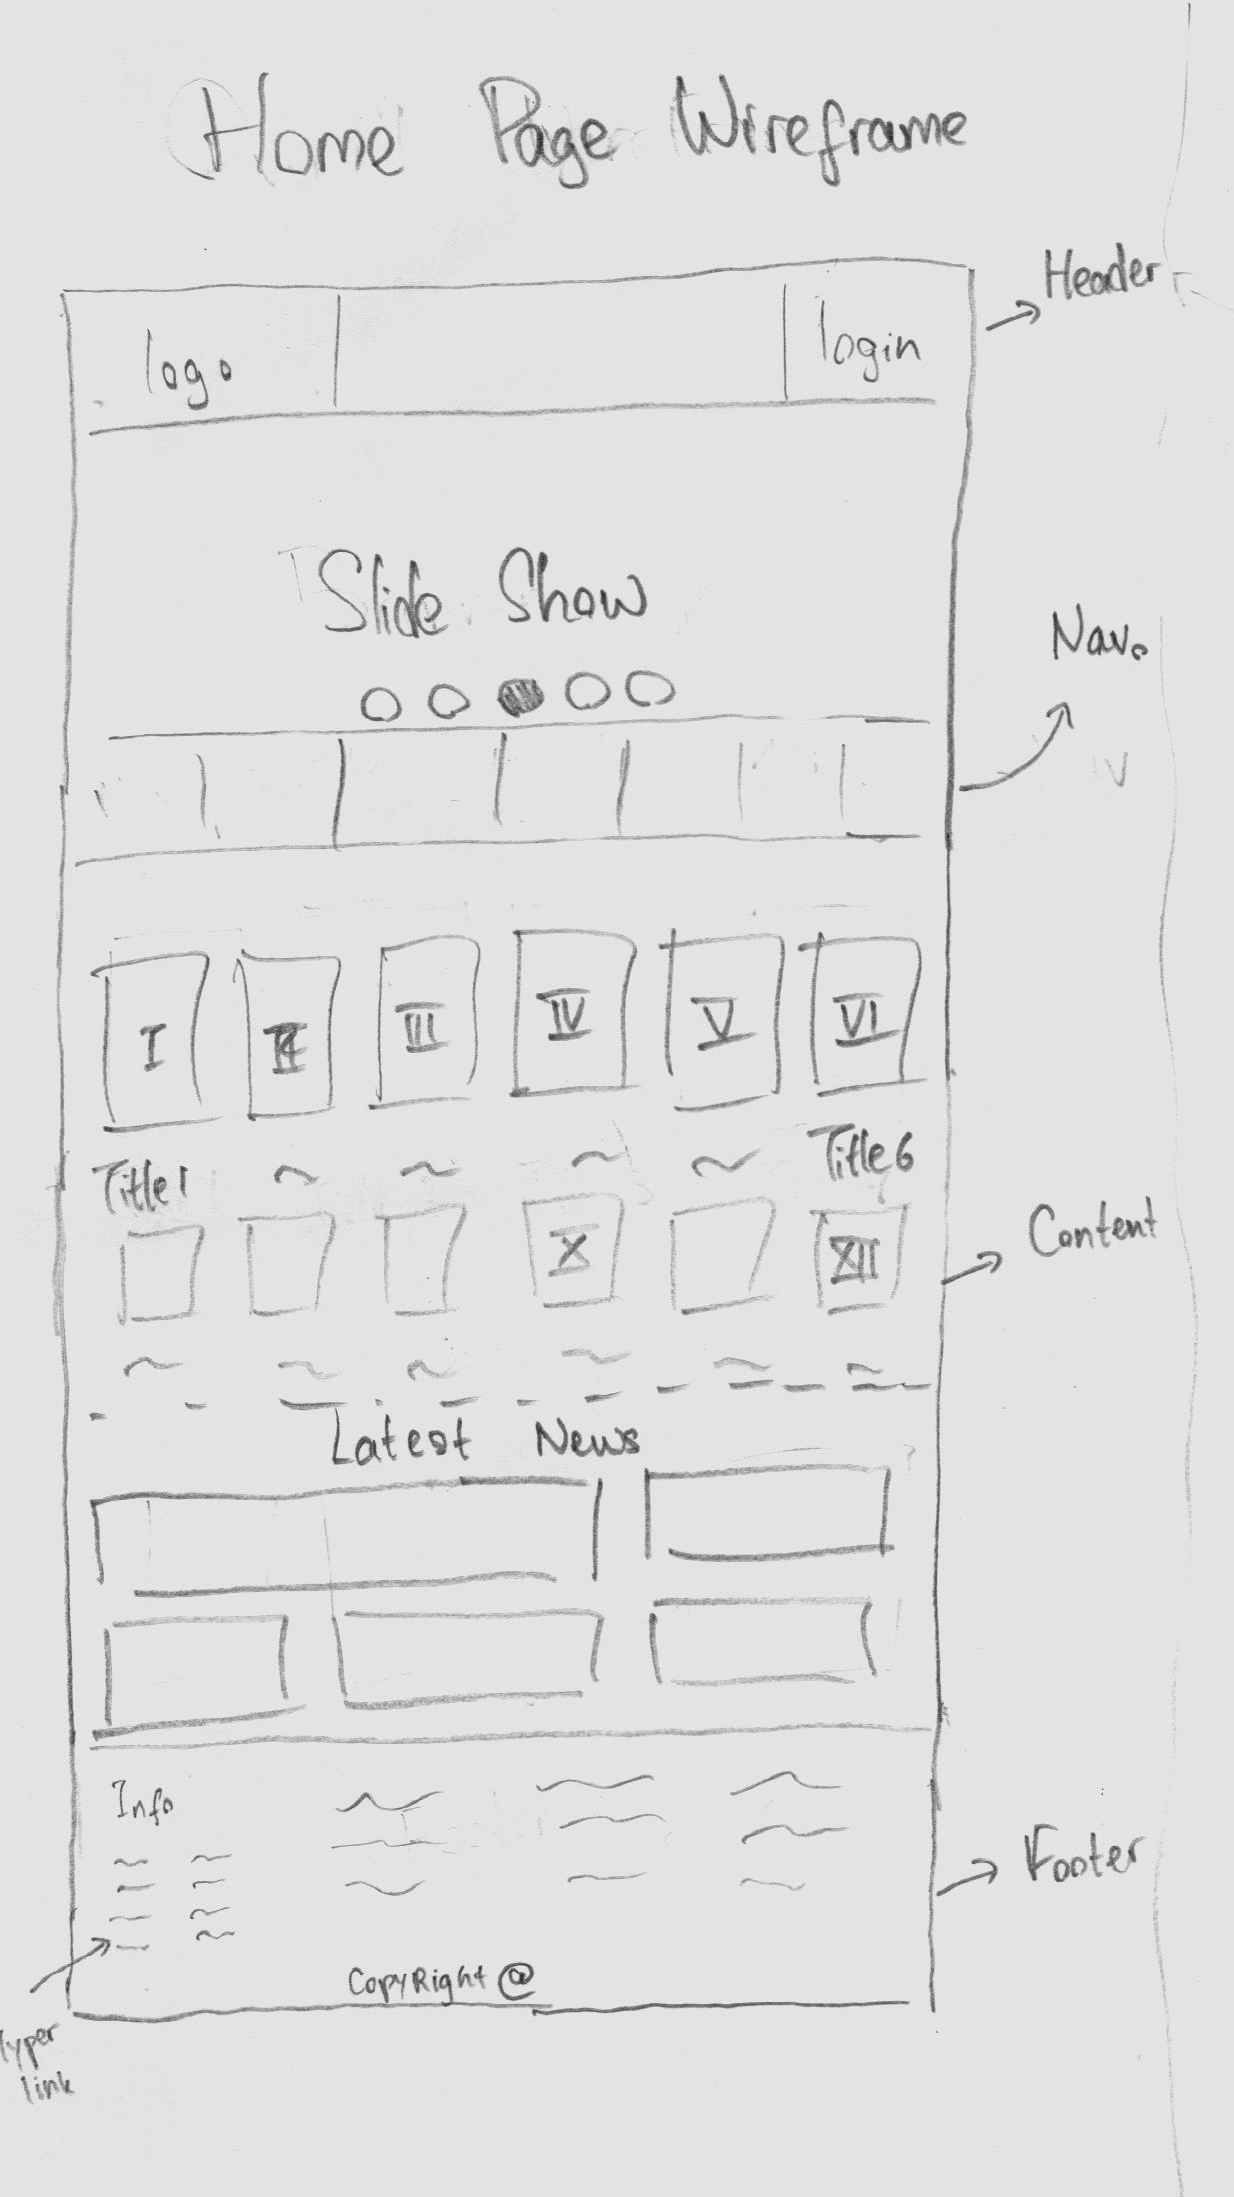 Home Page Wireframe
Header
logo
login
Slide Show
Nav.
I
II
III
IV
V
VI
Title 1
Title 6
X
XII
Content
Latest News
Info
Footer
CopyRight @
link